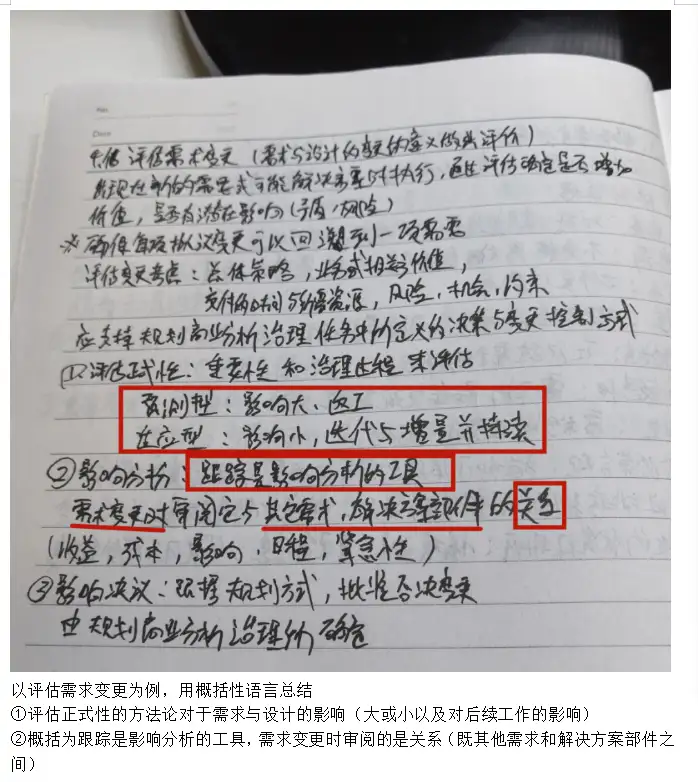 任务 评估需求变更（需求与设计的变更的意义做出评价）
发现在新的需求或可能解决方案时执行，通过评估确定是否增加
价值，是否有潜在影响（矛盾，风险）
※ 确保每项拟议变更可以回溯到一项需要
评估变更考虑：总体策略，业务或相关方价值，
交付的时间与所需资源，风险，机会，约束
应支持规划商业分析治理任务中所定义的决策与变更控制方式
①评估正式性：重要性和治理过程来评估
预测型：影响大、返工
适应型：影响小，迭代与增量并持续
②影响分析：跟踪是影响分析的工具
需求变更时审阅它与其它需求，解决方案部件的关系
（收益，成本，影响，日程，紧急性）
③影响决议：跟据规划方式，批准否决变更
由规划商业分析治理的确定
以评估需求变更为例，用概括性语言总结
①评估正式性的方法论对于需求与设计的影响（大或小以及对后续工作的影响）
②概括为跟踪是影响分析的工具，需求变更时审阅的是关系（既其他需求和解决方案部件之
间）